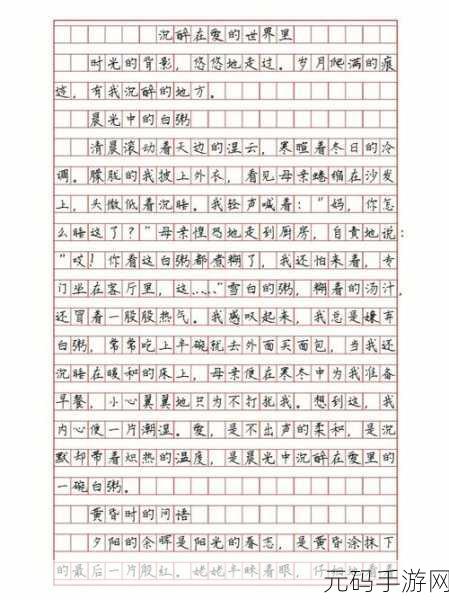 沉醉在爱的世界里
时光的背影，悠悠地走过。岁月爬满的痕
迹，有我沉醉的地方。
晨光中的白粥
清晨滚动着天边的湿云，寒暄着冬日的冷
调。朦胧的我披上外衣，看见母亲蜷缩在沙发
上，头微低着沉睡。我轻声喊着：“妈，你怎
么睡这了？”母亲惶恐地走到厨房，自责地说：
“哎！你看这白粥都煮糊了，我还怕来着，专
门坐在客厅里，这……”雪白的粥，糊着的汤汁，
还冒着一股股热气。我感叹起来，我总是嫌弃
白粥，常常吃上半碗就去外面买面包，当我还
沉睡在暖和的床上，母亲便在寒冬中为我准备
早餐，小心翼翼地只为不打扰我。想到这，我
内心便一片潮温。爱，是不出声的柔和，是沉
默却带着炽热的温度，是晨光中沉醉在爱里的
一碗白粥。
黄昏时的问语
夕阳的余晖是阳光的眷恋，是黄昏涂抹下
的最后一片殷红。姥姥半眯着眼，仔细地看着
元码手游网